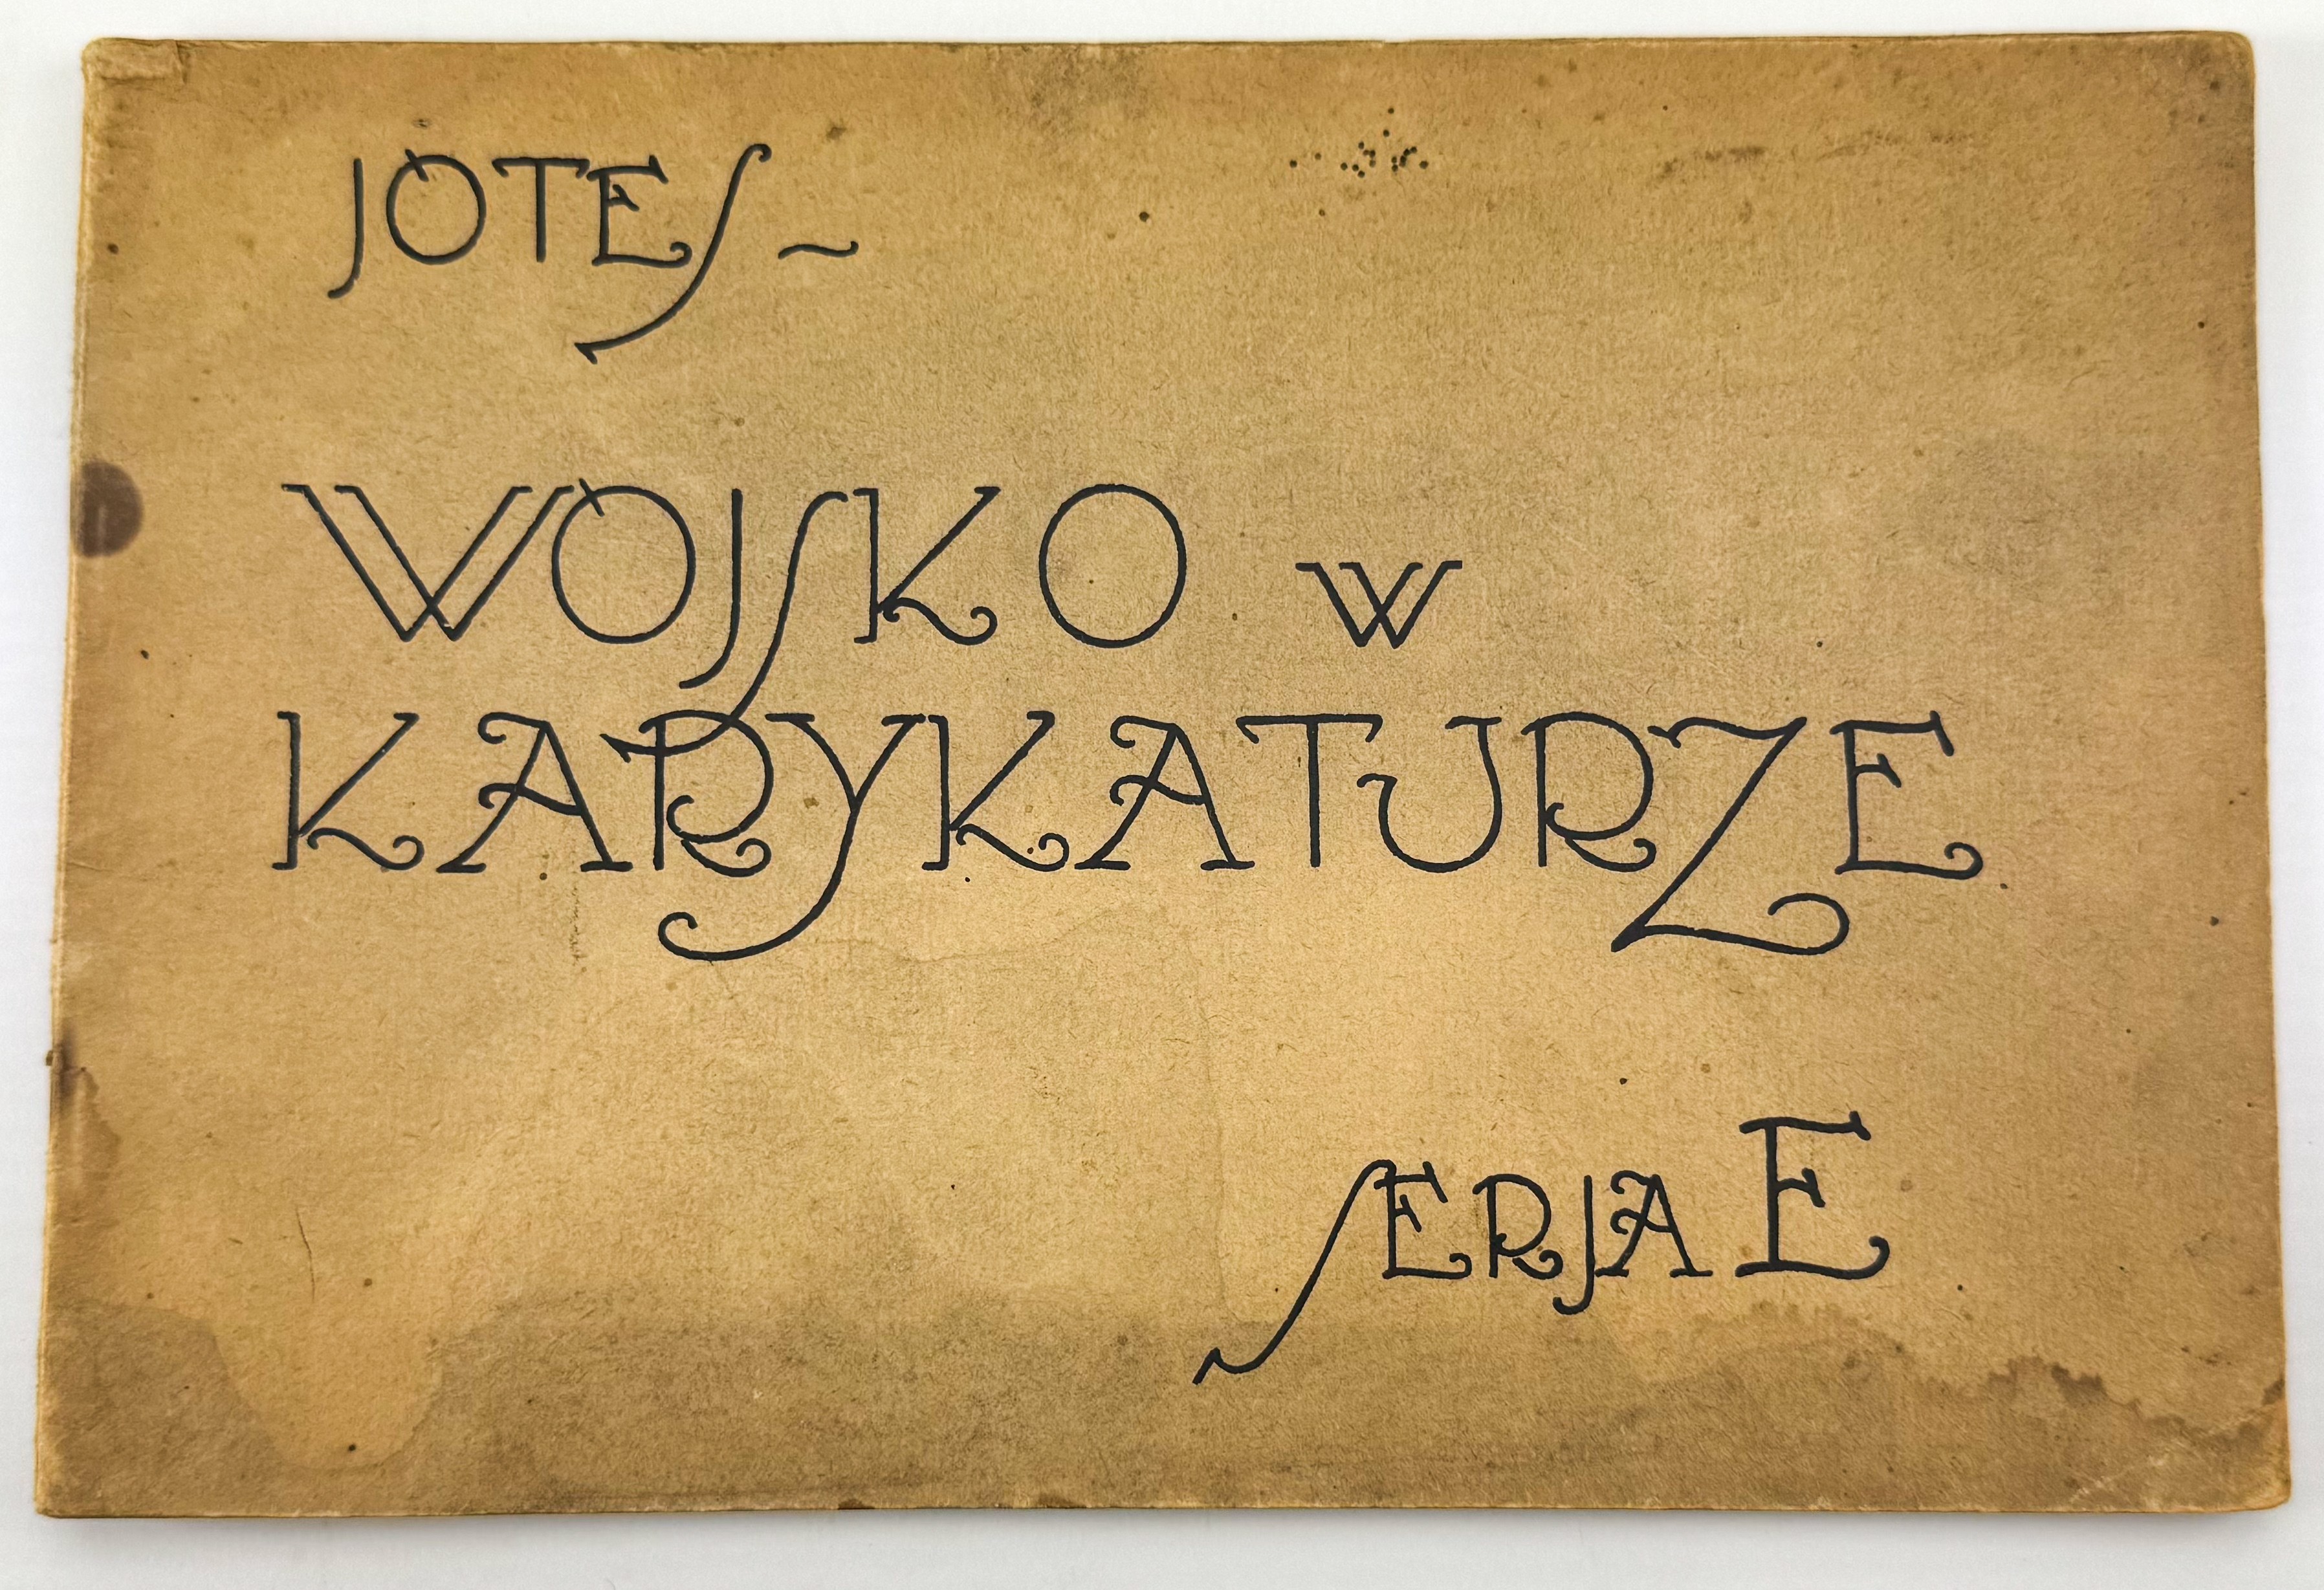 JOTES ~
WOJSKO w
KARYKATURZE
SERJA E